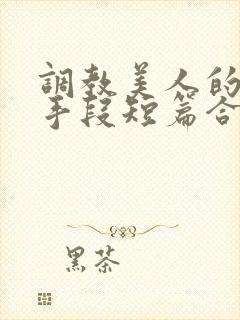 調教美人的
手段短篇合
黑茶